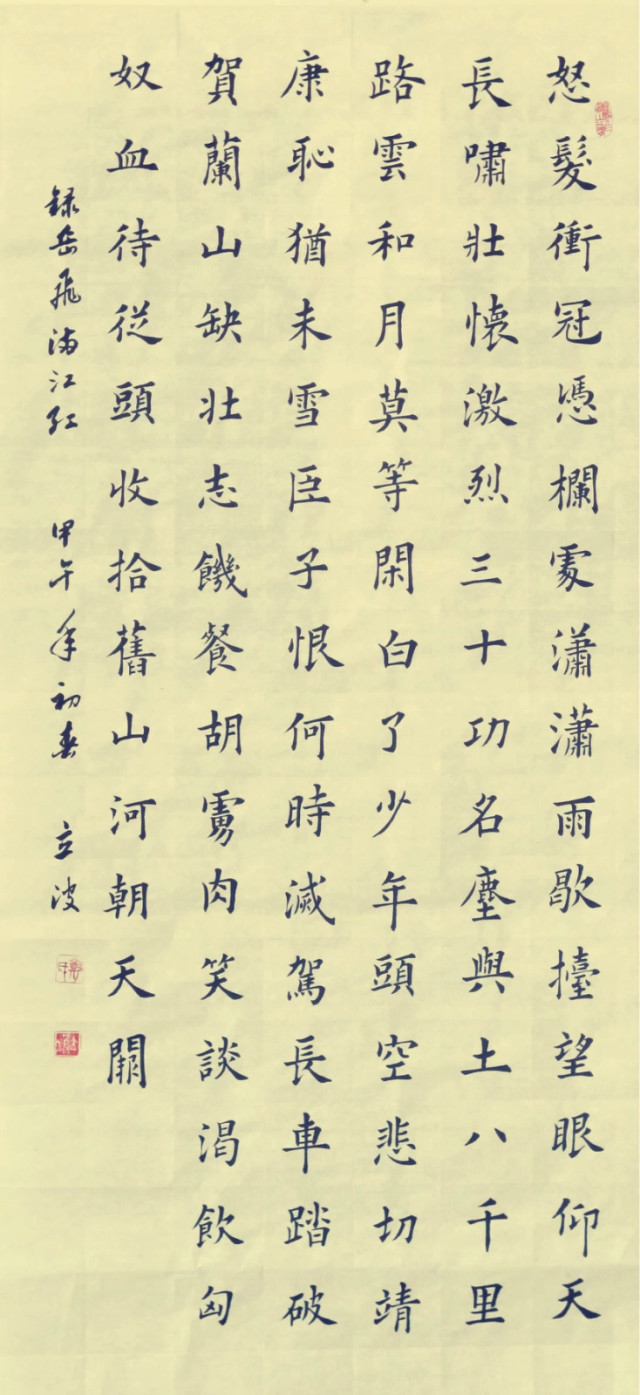 怒髮衝冠憑欄處瀟瀟雨歇擡望眼仰天
長嘯壯懷激烈三十功名塵與土八千里
路雲和月莫等閑白了少年頭空悲切靖
康恥猶未雪臣子恨何時滅駕長車踏破
賀蘭山缺壯志饑餐胡虜肉笑談渴飲匈
奴血待從頭收拾舊山河朝天闕
録岳飛滿江紅 甲午年初春 立波